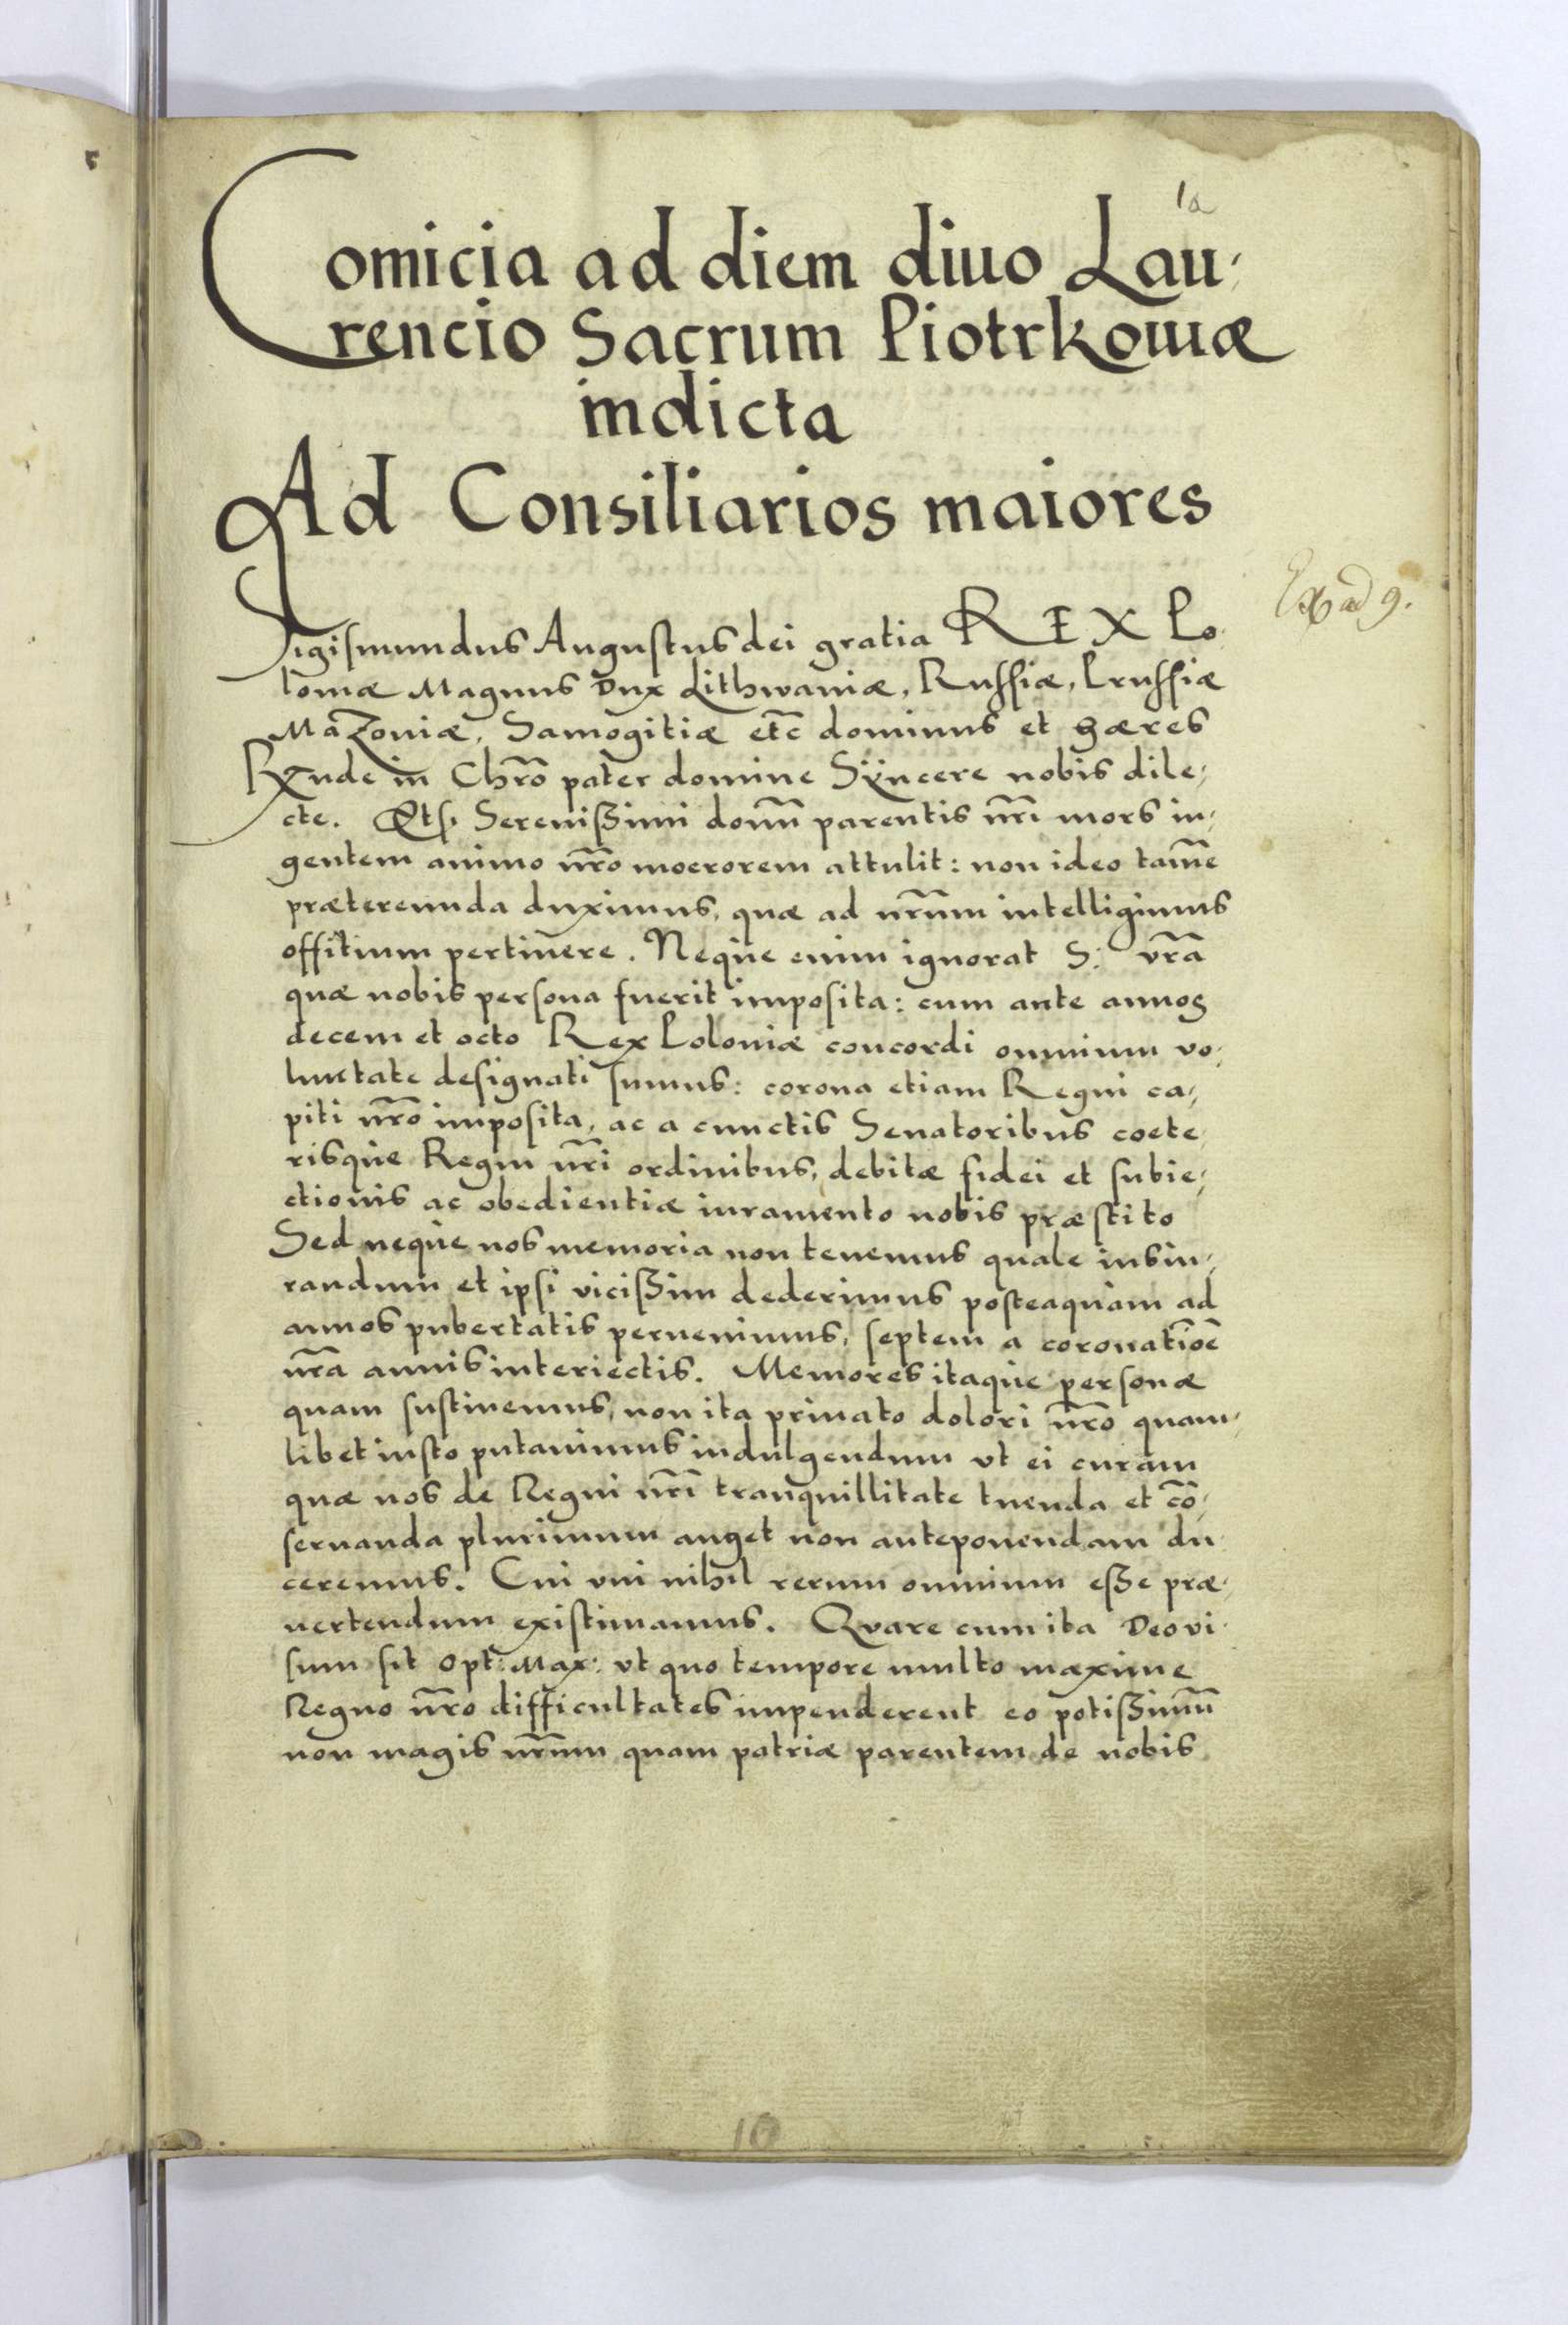 1a
Comicia ad diem diuo Lau,
rencio Sacrum Piotrkowiæ
indicta
Ad Consiliarios maiores
Sigismundus Augustus dei gratia REX Po,
loniæ Magnus Dux Lithwaniæ, Russiæ, Prussiæ
Mazoniæ, Samogitiæ etc̄ dominus et hæres
Rx̄nde in Chr̄o pater domine Syncere nobis dile,
cte. Etsi Serenißimi domī parentis nr̄i mors in,
gentem animo nr̄o moerorem attulit: non ideo tamē
prætereunda duximus, quæ ad nr̄um intelligimus
offitium pertinere. Neque enim ignorat S: vr̄a
quæ nobis persona fuerit imposita: cum ante annos
decem et octo Rex Poloniæ concordi omnium vo,
luntate designati sumus: corona etiam Regni ca,
piti nr̄o imposita, ac a cunctis Senatoribus coete,
risque Regni nr̄i ordinibus, debitæ fidei et subie,
ctionis ac obedientiæ iuramento nobis præstito
Sed neque nos memoria non tenemus quale iusiu,
randum et ipsi vicißim dederimus posteaquam ad
annos pubertatis peruenimus, septem a coronatiōe
nr̄a annis interiectis. Memores itaque personæ
quam sustinemus, non ita priuato dolori nr̄o quam,
libet iusto putauimus indulgendum vt ei curam
quæ nos de Regni nr̄i tranquillitate tuenda et cō,
seruanda plurimum anget non anteponendam du,
ceremus. Cui vni nihil rerum omnium eße præ,
uertendum existimamus. Quare cum ita Deo vi,
sum sit Opt: Max: vt quo tempore multo maxime
Regno nr̄o difficultates impenderent eo potißimū
non magis nr̄um quam patriæ parentem de nobis
10